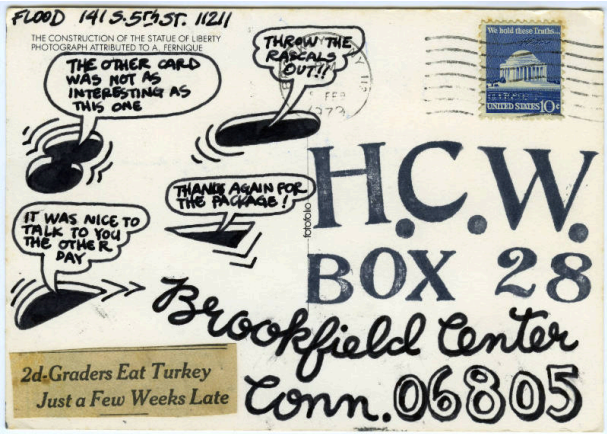 FLOOD 141 S. 5TH ST. 11211
THE CONSTRUCTION OF THE STATUE OF LIBERTY
PHOTOGRAPH ATTRIBUTED TO A. FERNIQUE
THE OTHER CARD
WAS NOT AS
INTERESTING AS
THIS ONE
THROW THE
RASCALS
OUT!!
FEB
We hold these Truths...
UNITED STATES 10c
THANKS AGAIN FOR
THE PACKAGE!
fotofolio
IT WAS NICE TO
TALK TO YOU
THE OTHER
DAY
H.C.W.
BOX 28
Brookfield Center
Conn. 06805
2d-Graders Eat Turkey
Just a Few Weeks Late